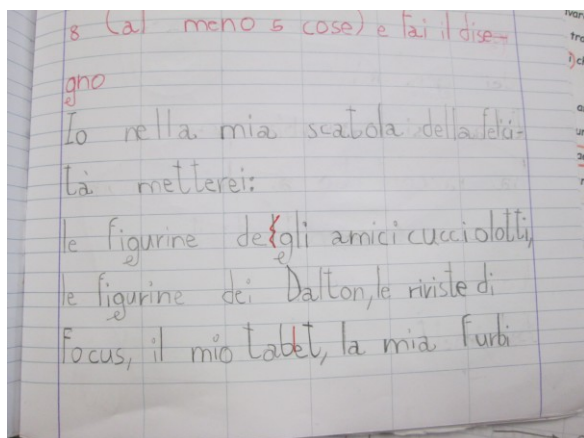 8 (al meno 5 cose) e fai il dise-
gno
Io nella mia scatola della felici-
tà metterei:
le figurine degli amici cucciolotti,
le figurine dei Dalton, le riviste di
Focus, il mio tablet, la mia Furbi